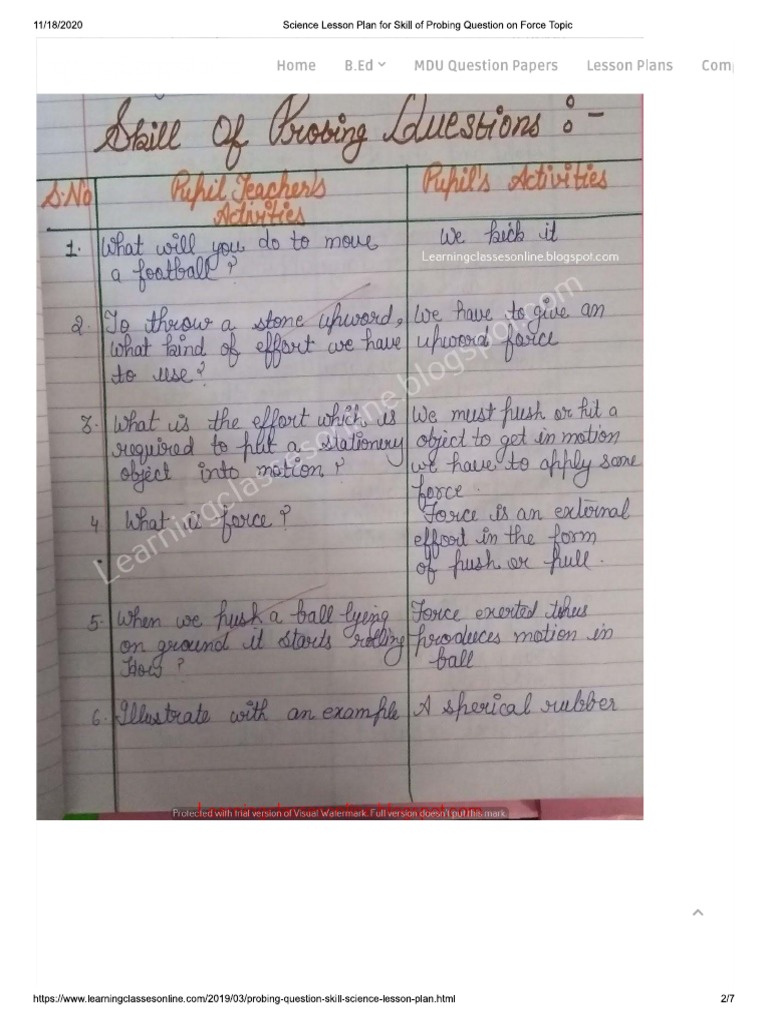 11/18/2020 Science Lesson Plan for Skill of Probing Question on Force Topic
Home B.Ed MDU Question Papers Lesson Plans Com
Skill Of Probing Questions :-
S.No Pupil Teacher's Activities Pupil's Activities
1. What will you do to move
a football?
We kick it
Learningclassesonline.blogspot.com
2. To throw a stone upword,
what kind of effort we have
to use?
We have to give an
upword force
3. What is the effort which is
required to put a stationery
object into motion?
We must push or hit a
object to get in motion
we have to apply some
force.
4 What is force?
Force is an external
effort in the form
of push or pull.
5. When we push a ball lyeing
on ground it starts rolling
How?
Force exerted thus
produces motion in
ball
6. Illustrate with an example
A spherical rubber
Learningclassesonline.blogspot.com
Protected with trial version of Visual Watermark. Full version doesn't put this mark.
https://www.learningclassesonline.com/2019/03/probing-question-skill-science-lesson-plan.html 2/7